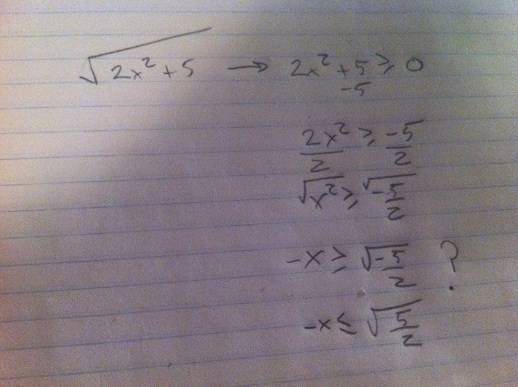 √2x²+5 → 2x²+5 ≥ 0
-5
2x²/2 ≥ -5/2
√x² ≥ √-5/2
-x ≥ √-5/2 ?
-x ≤ √5/2